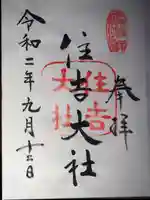 奉拝
住吉大社
住吉
大社
令和二年九月十三日